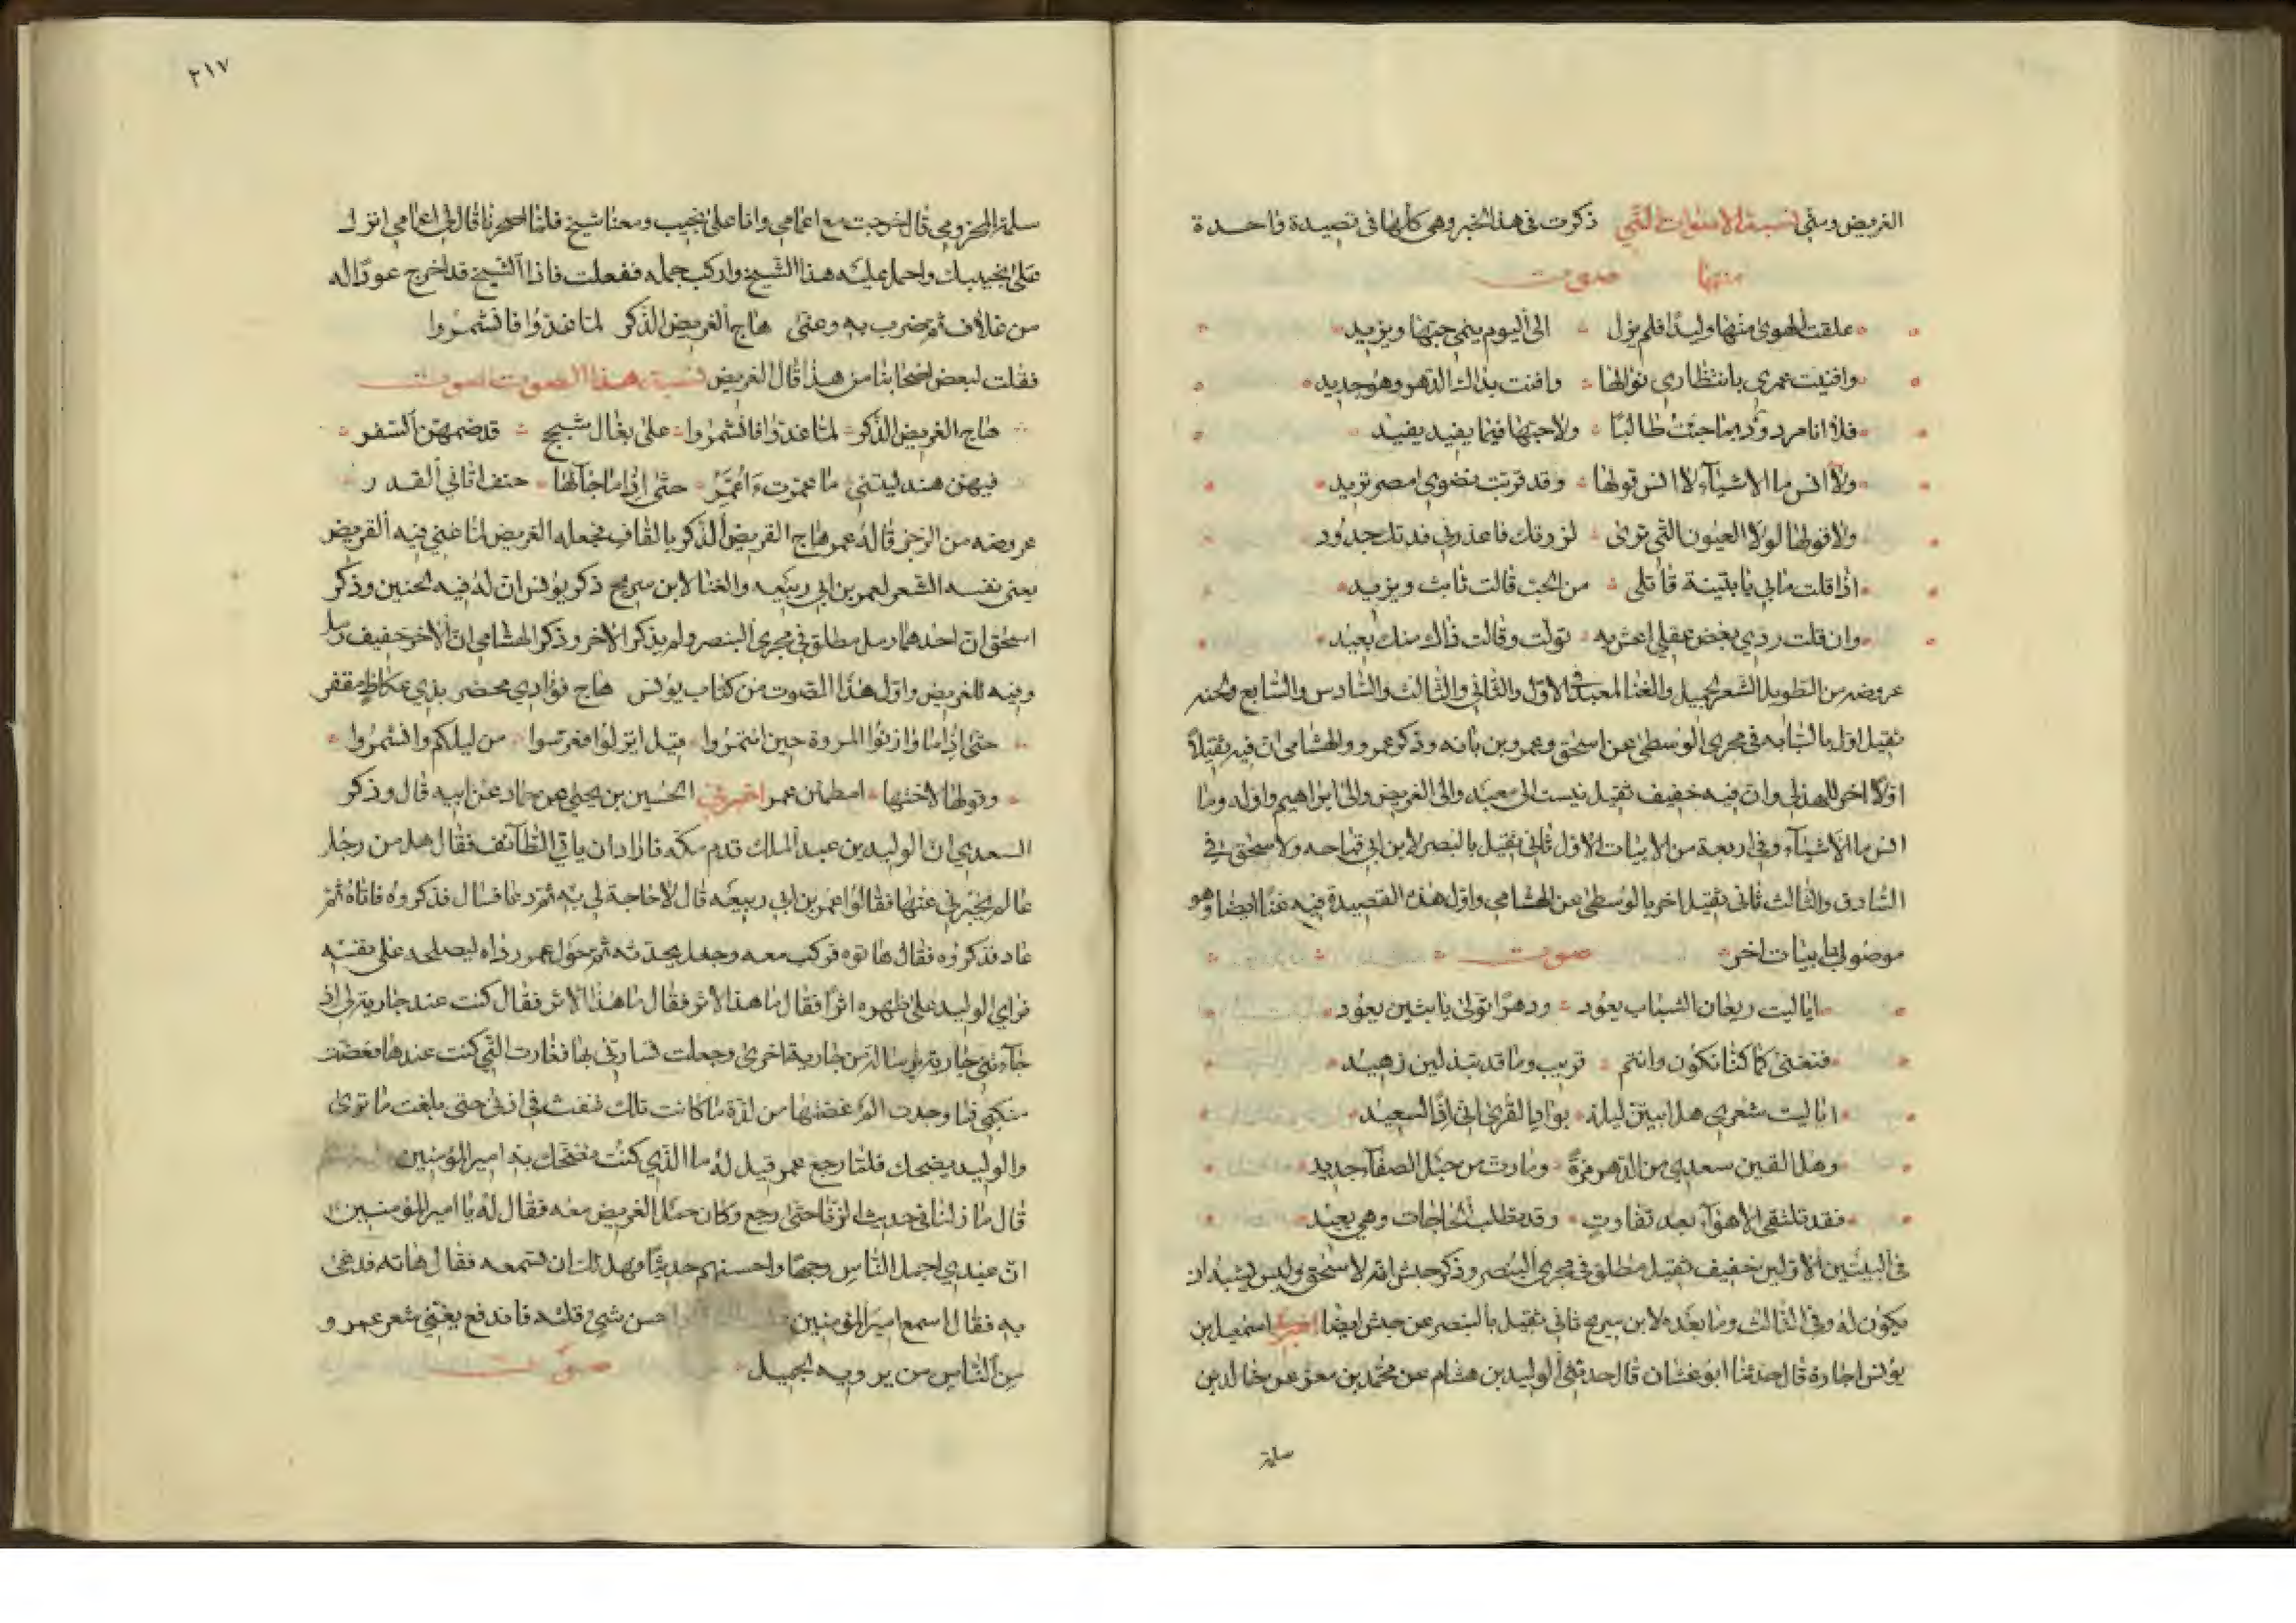 الغريض ومتى نسبة الاصوات التي ذكرت في هذا الخبر وهي كلها في قصيدة واحدة
منها صوت
علقت الهوى منها وليدا فلم يزل الى اليوم ينمي حبها ويزيد
وافنيت عمري بانتظاري نوالها وافنت بذاك الدهر وهو جديد
فلا انا مردود بما جئت طالبا ولا حبها فيما يفيد يفيد
ولا انس ما الاشياء لا انس قولها وقد قربت نضوي امصر تريد
ولا قولها لولا العيون التي ترى لزرتك فاعذرني فدتك جدود
اذا قلت ما بي يا بثينة قاتلي من الحب قالت ثابت ويزيد
وان قلت ردي بعض عقلي اعش به تولت وقالت ذاك منك بعيد
عروضه من الطويل الشعر لجميل والغنا لمعبد في الاول والثاني والثالث والسادس والسابع ولحنه
ثقيل اول بالسبابه في مجرى الوسطى عن اسحق وعمرو بن بانه وذكر عمرو والهشامي ان فيه ثقيلا
اولا اخر للهذلي وان فيه خفيف ثقيل نسب الى معبد والى الغريض والى ابراهيم واوله وما
انس ما الاشياء وفي اربعة من الابيات الاول ثاني ثقيل بالبنصر لابن ابي قباحه ولاسحق في
السادس والثالث ثاني ثقيل اخر بالوسطى عن الهشامي واول هذه القصيدة فيه غنا ايضا وهو
موصول بابيات اخر صوت
الا ليت ريعان الشباب يعود ودهرا تولى يا بثين يعود
فنغنى كما كنا نكون وانتم قريب وما قد تبذلين زهيد
الا ليت شعري هل ابيتن ليلة بوادي القرى اني اذا لسعيد
وهل القين سعدى من الدهر مرة وما رث من حبل الصفاء جديد
فقد تلتقي الاهواء بعد تفاوت وقد تطلب الحاجات وهي بعيد
في البيتين الاولين خفيف ثقيل مطلق في مجرى البنصر وذكر حبش انه لاسحق وليس يشبه ان
يكون له وفي الثالث وما بعده لابن سريج ثاني ثقيل بالبنصر عن حبش ايضا اخبرنا اسمعيل بن
يونس اجازة قال حدثنا ابو غسان قال حدثني الوليد بن هشام عن محمد بن معن عن خالد بن
سلمة
٢١٧
سلمة المخزومي قال خرجت مع اعمامي وانا على نجيب ومعنا شيخ فلما اسحرنا قال لي اعمامي انزل
على نجيبك واحمل عليه هذا الشيخ واركب جمله ففعلت فاذا الشيخ قد اخرج عودا له
من غلاف ثم ضرب به وغنى هاج الغريض الذكر لما غدوا فانشمروا
فقلت لبعض اصحابنا من هذا قال الغريض نسبة هذا الصوت صوت
هاج الغريض الذكر لما غدوا فانشمروا على بغال شحج قد ضمهن السفر
فيهن هند ليتني ما عمرت اعمر حتى اذا ما جاءها حتف اتاني القدر
عروضه من الرجز قال له عمر هاج القريض الذكر بالقاف فجعله الغريض لما غنى فيه الغريض
يعني نفسه الشعر لعمر بن ابي ربيعه والغنا لابن سريج ذكر يونس ان له فيه لحنين وذكر
اسحق ان احدهما رمل مطلق في مجرى البنصر ولم يذكر الاخر وذكر الهشامي ان الاخر خفيف رمل
وفيه للغريض واول هذا الصوت من كتاب يونس هاج فؤادي محضر بذي عكاظ مقفر
حتى اذا ما وازنوا المروة حين ائتمروا قيل انزلوا فعرسوا من ليلكم وانشمروا
وقولها لاختها امطمئن عمر اخبرني الحسين بن يحيى عن حماد عن ابيه قال وذكر
السعدي ان الوليد بن عبد الملك قدم مكة فاراد ان ياتي الطائف فقال هل من رجل
عالم يخبرني عنها فقالوا عمر بن ابي ربيعه قال لا حاجة لي به ثم رد عما فسال فذكروه فاتاه ثم
عاد فذكروه فقال هاتوه فركب معه وجعل يحدثه ثم حول عمر رداه ليصلحه على نفسه
فراى الوليد على ظهره اثرا فقال ما هذا الاثر فقال ما هذا الاثر فقال كنت عند جارية لي اذ
جاءتني جارية برسالة من جارية اخرى وجعلت تسارني بها فغارت التي كنت عندها فعضت
منكبي فما وجدت الم عضتها من لذة ما كانت تلك تنفث في اذني حتى بلغت ما ترى
والوليد يضحك فلما رجع عمر قيل له ما الذي كنت تضحك به امير المؤمنين
قال ما زلنا في حديث الزنا حتى رجع وكان حمل الغريض معه فقال له يا امير المؤمنين
ان عندي اجمل الناس وجها واحسنهم حديثا فهل لك ان تسمعه فقال هاته فدعى
به فقال اسمع امير المؤمنين احسن شي قلته فاندفع يغني شعر عمر و
من الناس من يرويه لجميل صوت